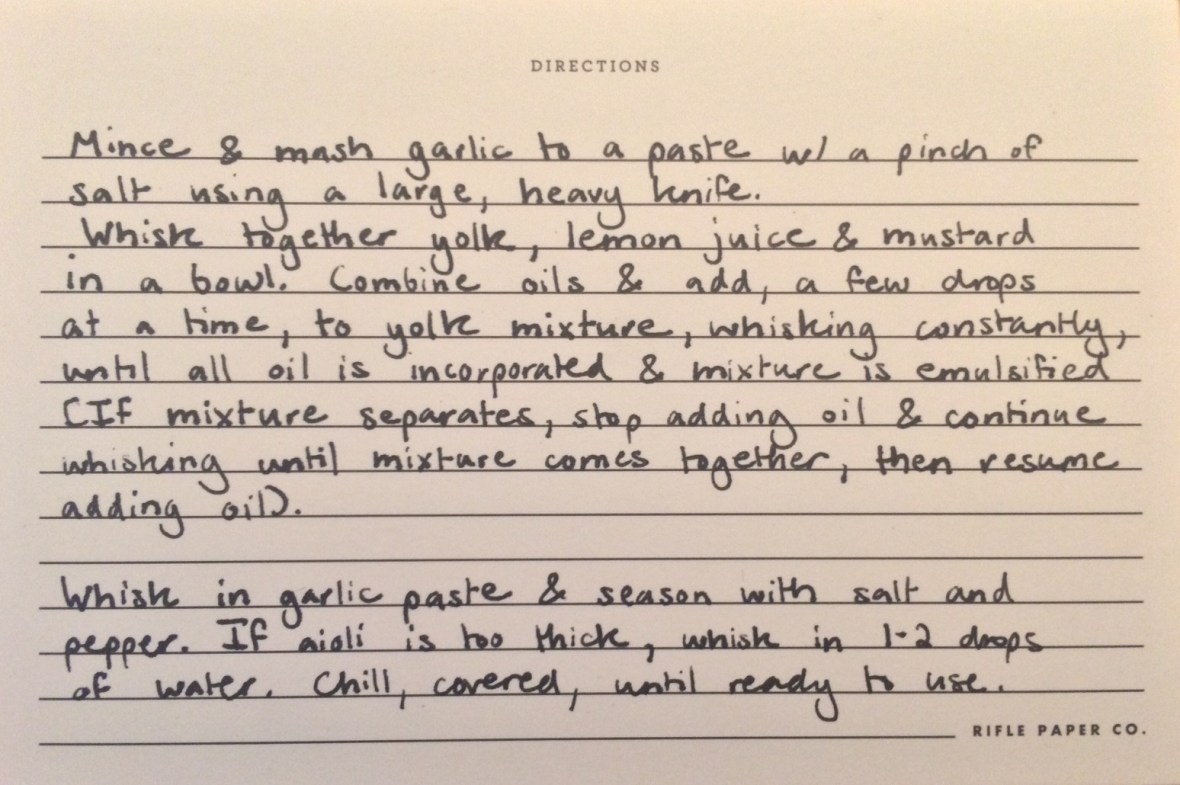 DIRECTIONS
Mince & mash garlic to a paste w/ a pinch of
salt using a large, heavy knife.
Whisk together yolk, lemon juice & mustard
in a bowl. Combine oils & add, a few drops
at a time, to yolk mixture, whisking constantly,
until all oil is incorporated & mixture is emulsified
(If mixture separates, stop adding oil & continue
whisking until mixture comes together, then resume
adding oil).
Whisk in garlic paste & season with salt and
pepper. If aioli is too thick, whisk in 1-2 drops
of water. Chill, covered, until ready to use.
RIFLE PAPER CO.